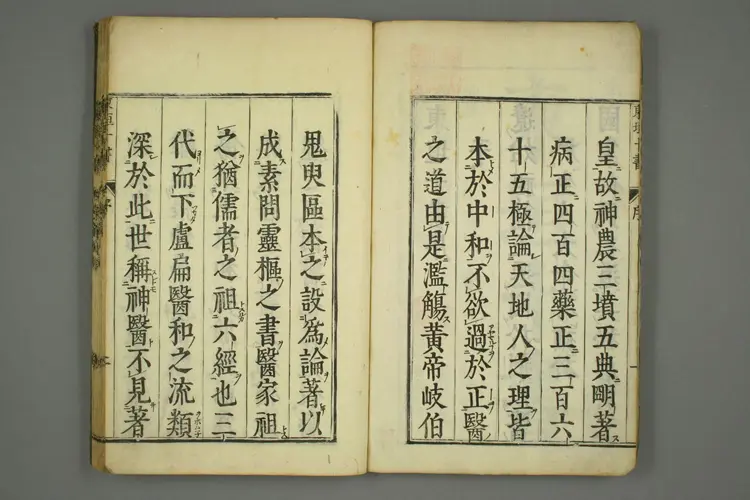 皇故神農三墳五典明著
病正四百四藥正三百六
十五極論天地人之理皆
本於中和不欲過於正醫
之道由是濫觴黃帝岐伯
鬼臾區本之設為論著以
成素問靈樞之書醫家祖
之猶儒者之祖六經也三
代而下盧扁醫和之流類
深於此世稱神醫不見著